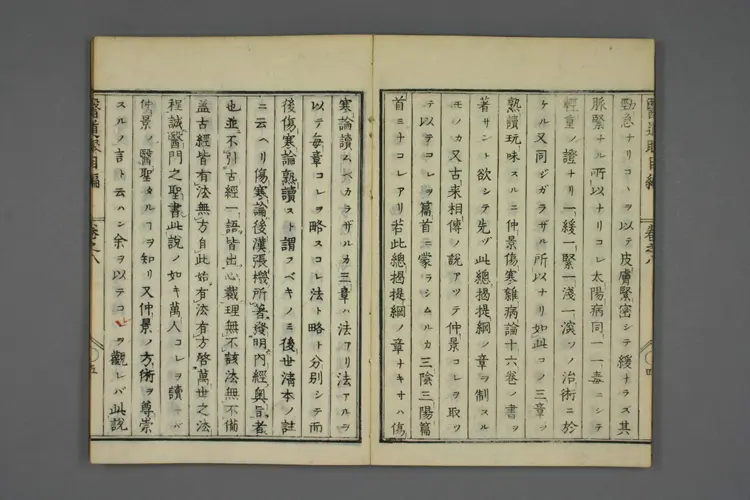 勁急ナリコヽヲ以テ皮膚緊密シテ緩ナラズ其
脈緊ナル所以ナリコレ太陽病同一一毒ニシテ
輕重ノ證ナリ一緩一緊一淺一深ソノ治術ニ於
ケル又同ジカラザル所以ナリ如此コノ三章ヲ
熟讀玩味スルニ仲景傷寒雜病論十六卷ノ書ヲ
著サント欲シテ先ヅ此總揭提綱ノ章ヲ制スル
モノカ又古來相傳ノ說アツテ仲景コレヲ取ツ
テ以テコレヲ篇首ニ蒙ラシムルカ三陰三陽篇
首ミナコレアリ若此總揭提綱ノ章ナキオハ傷
醫道眼目編 卷之八 四
寒論讀ムベカラザルカ三章ハ法アリ法アルヲ
以テ每章コレヲ略スコレ法ト略ト分別シテ而
後傷寒論熟讀スト謂フベキノミ後世諸本ノ註
ニ云ヘリ傷寒論後漢張機所著發明內經奧旨者
也並不引古經一語皆出心裁理無不該法無不備
蓋古經皆有法無方自此始有法有方啓萬世之法
程誠醫門之聖書此說ノ如キ萬人コレヲ讀ナバ
仲景ノ醫聖タルヿヲ知リ又仲景ノ方術ヲ尊崇
スルノ言ト云ハン余ヲ以テコレヲ觀レバ此說
醫道眼目編 卷之八 五